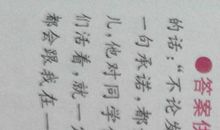 ●答案
的话："不论
一句承诺，都
儿，他对同学
们活着，就一
都会跟我在一